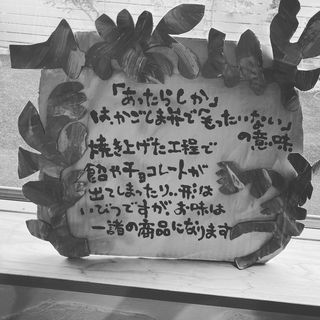 「あったらしか」
はかごしま弁で「もったいない」
の意味
焼き上げた工程で
餡やチョコレートが
出てしまったり..形は
いびつですが お味は
一諸の商品になります